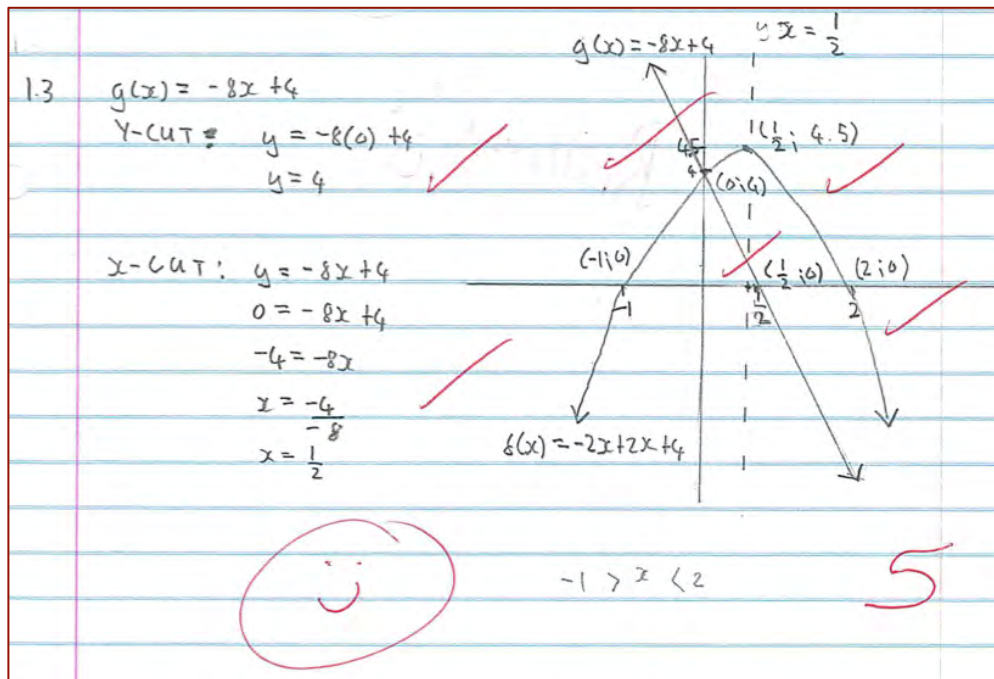 1.3 g(x) = -8x+4
Y-CUT: y = -8(0) +4
y = 4
X-CUT: y = -8x+4
0 = -8x+4
-4 = -8x
x = -4/-8
x = 1/2
x = 1/2
g(x) = -8x+4
(1/2; 4.5)
4.5
4
(0;4)
(-1;0)
(1/2;0)
(2;0)
-1
1/2
2
f(x) = -2x+2x+4
-1 > x < 2
5